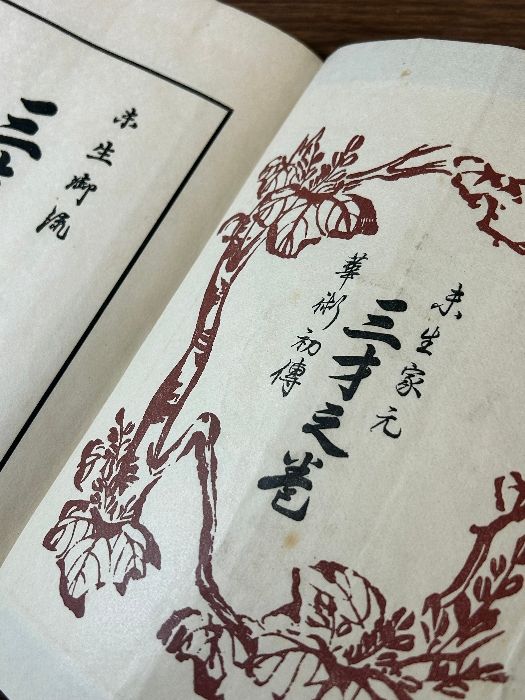 未生家元
三才之巻
華術初傳
未生御流
三